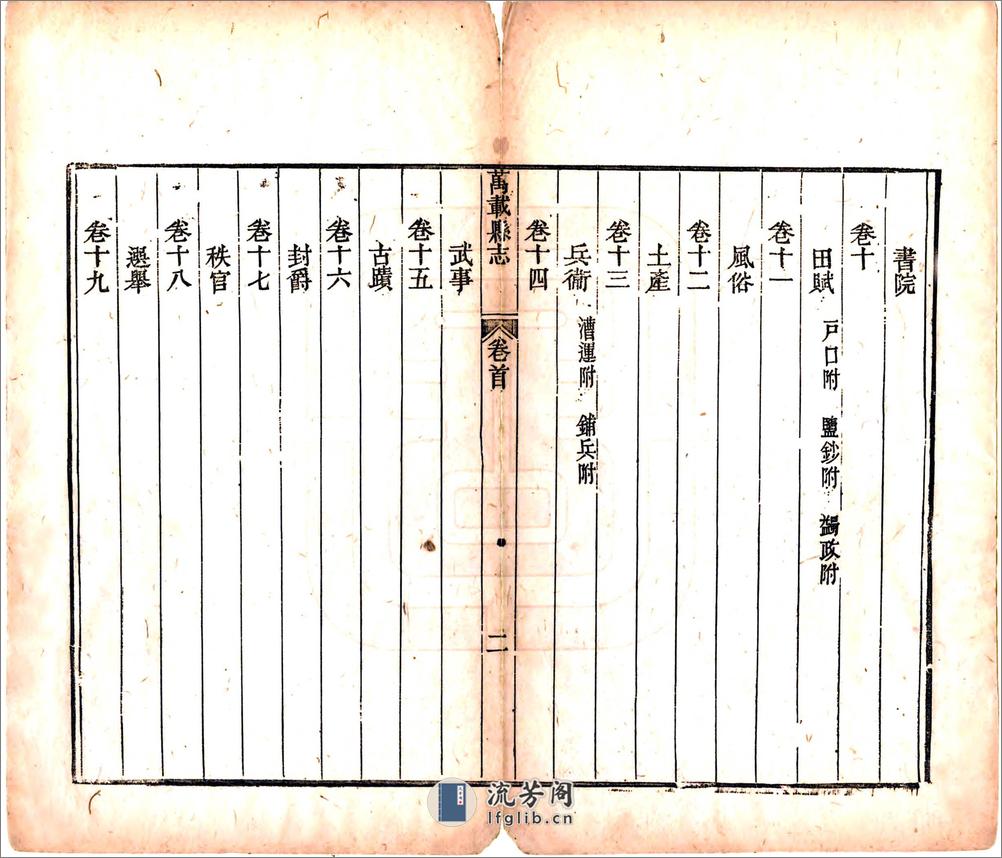 書院
卷十
田賦 戸口附 鹽鈔附 蠲政附
卷十一
風俗
卷十二
土產
卷十三
兵衛 漕運附 鋪兵附
卷十四
萬載縣志 卷首 二
武事
卷十五
古蹟
卷十六
封爵
卷十七
秩官
卷十八
選舉
卷十九
流芳阁
lfglib.cn